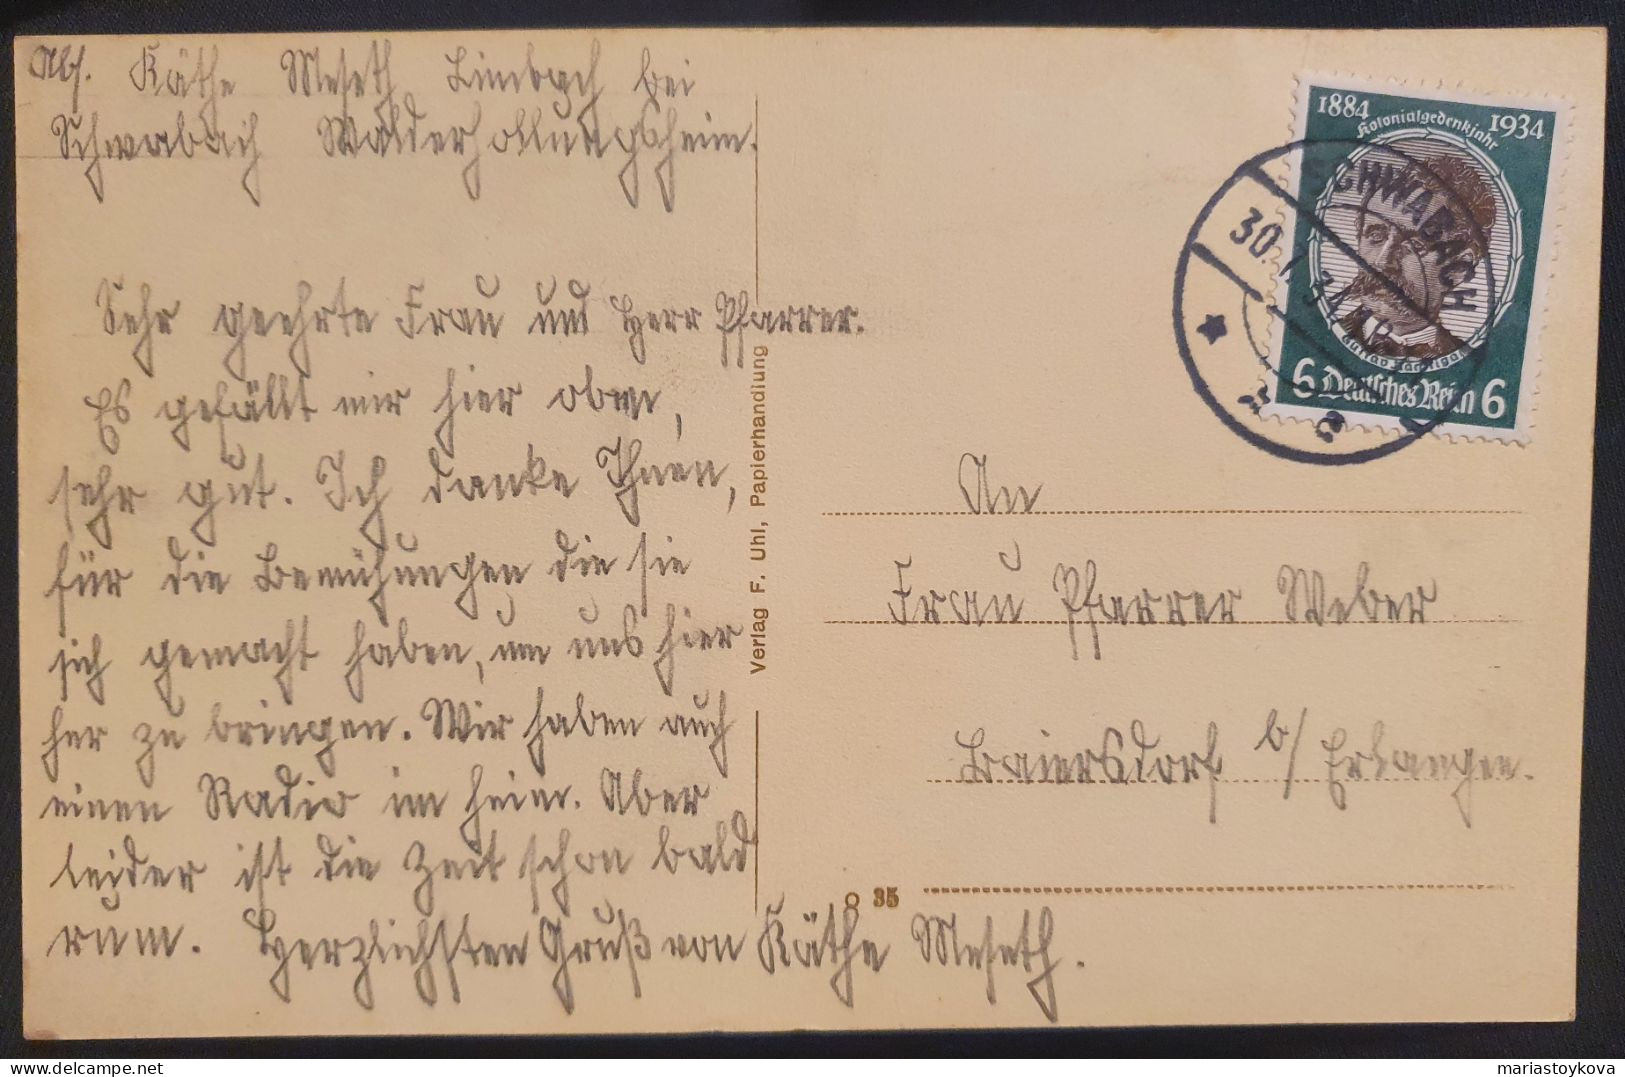 Abs. Käthe Meseth Limbach bei
Schwabach Walderhollungsheim.
Sehr geehrte Frau und Herr Pfarrer.
Es gefällt mir hier oben,
sehr gut. Ich danke Ihnen,
für die Bemühungen die sie
sich gemacht haben, um uns hier
her zu bringen. Wir haben auch
einen Radio im heim. Aber
leider ist die Zeit schon bald
rum. Herzlichsten Gruß von Käthe Meseth.
Verlag F. Uhl, Papierhandlung
1884 1934
Kolonialgedenkjahr
6 Deutsches Reich 6
SCHWABACH
30. 7. 34
An
Frau Pfarrer Weber
Baiersdorf b/ Erlangen.
O 35
delcampe.net
mariastoykova